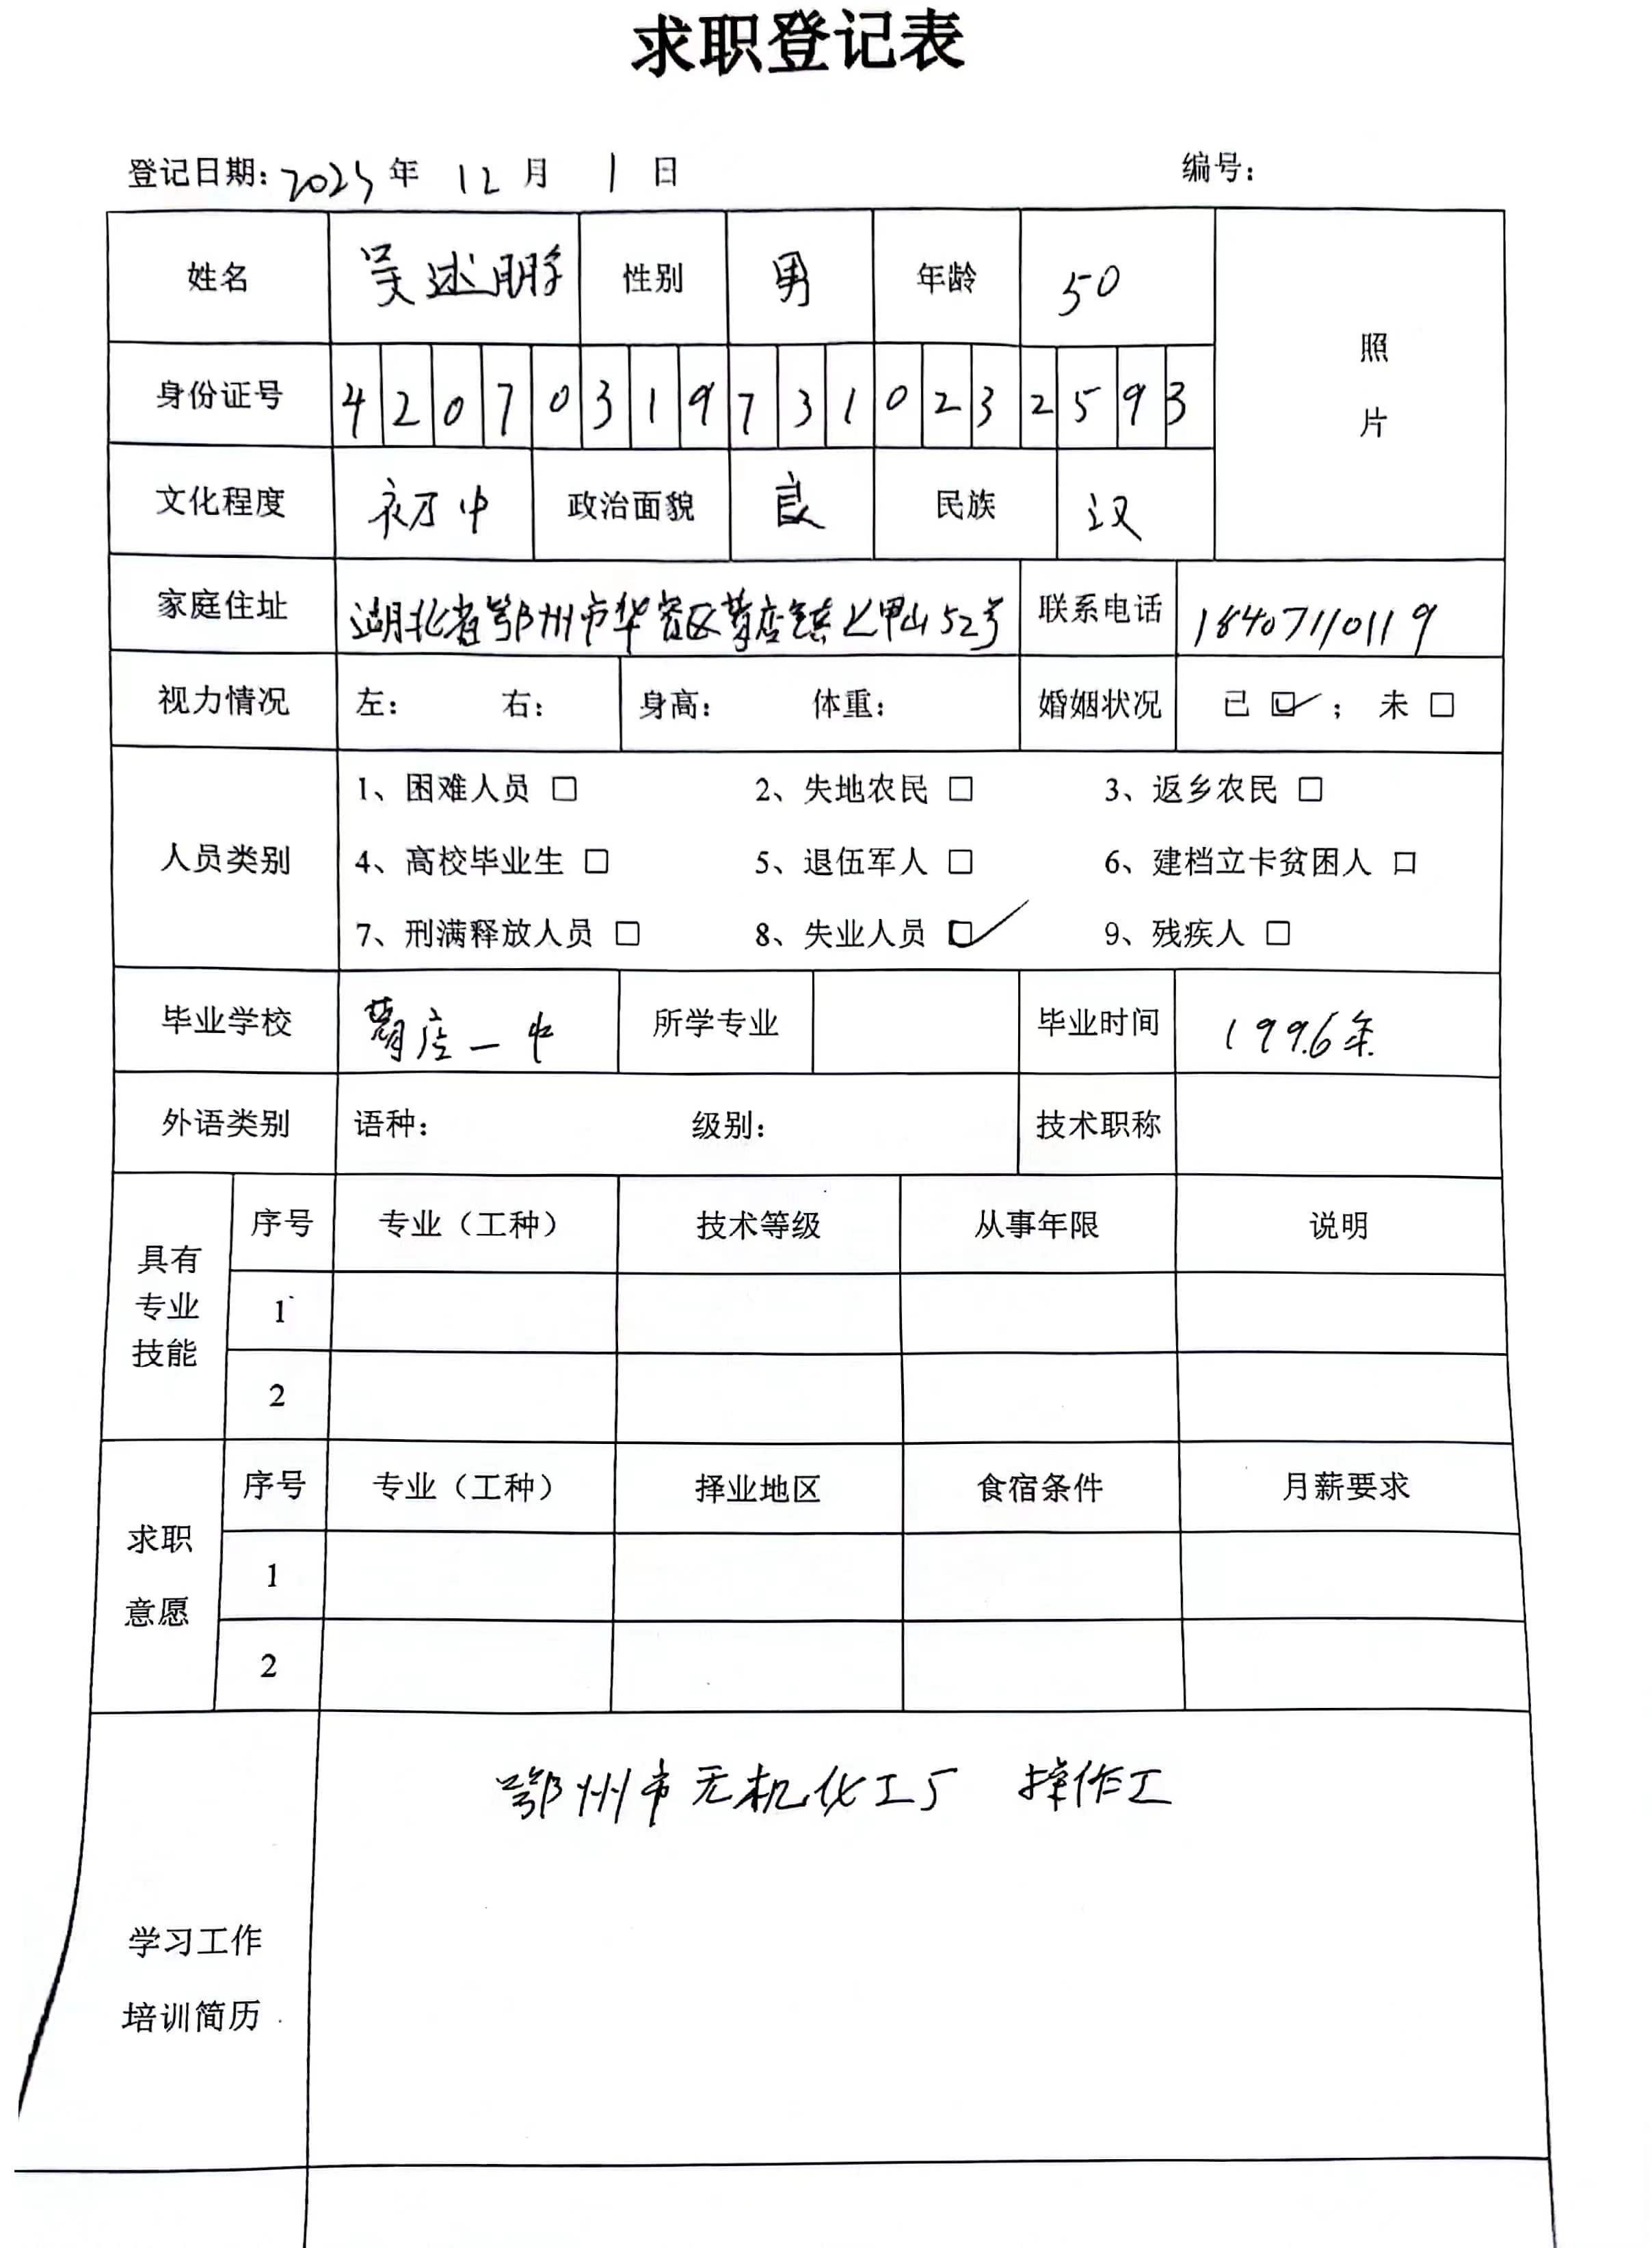 求职登记表
登记日期：2025年 12月 1日 编号：
姓名 吴述鹏 性别 男 年龄 50 照片
身份证号 420703197310232593
文化程度 初中 政治面貌 良 民族 汉
家庭住址 湖北省鄂州市华容区葛店镇 甲山52号 联系电话 18407110119
视力情况 左： 右： 身高： 体重： 婚姻状况 已 ☑； 未 □
人员类别
1、困难人员 □ 2、失地农民 □ 3、返乡农民 □
4、高校毕业生 □ 5、退伍军人 □ 6、建档立卡贫困人 □
7、刑满释放人员 □ 8、失业人员 ☑ 9、残疾人 □
毕业学校 葛店一中 所学专业 毕业时间 1996年
外语类别 语种： 级别： 技术职称
具有专业技能
序号 专业（工种） 技术等级 从事年限 说明
1
2
求职意愿
序号 专业（工种） 择业地区 食宿条件 月薪要求
1
2
学习工作培训简历
鄂州市无机化工厂 操作工